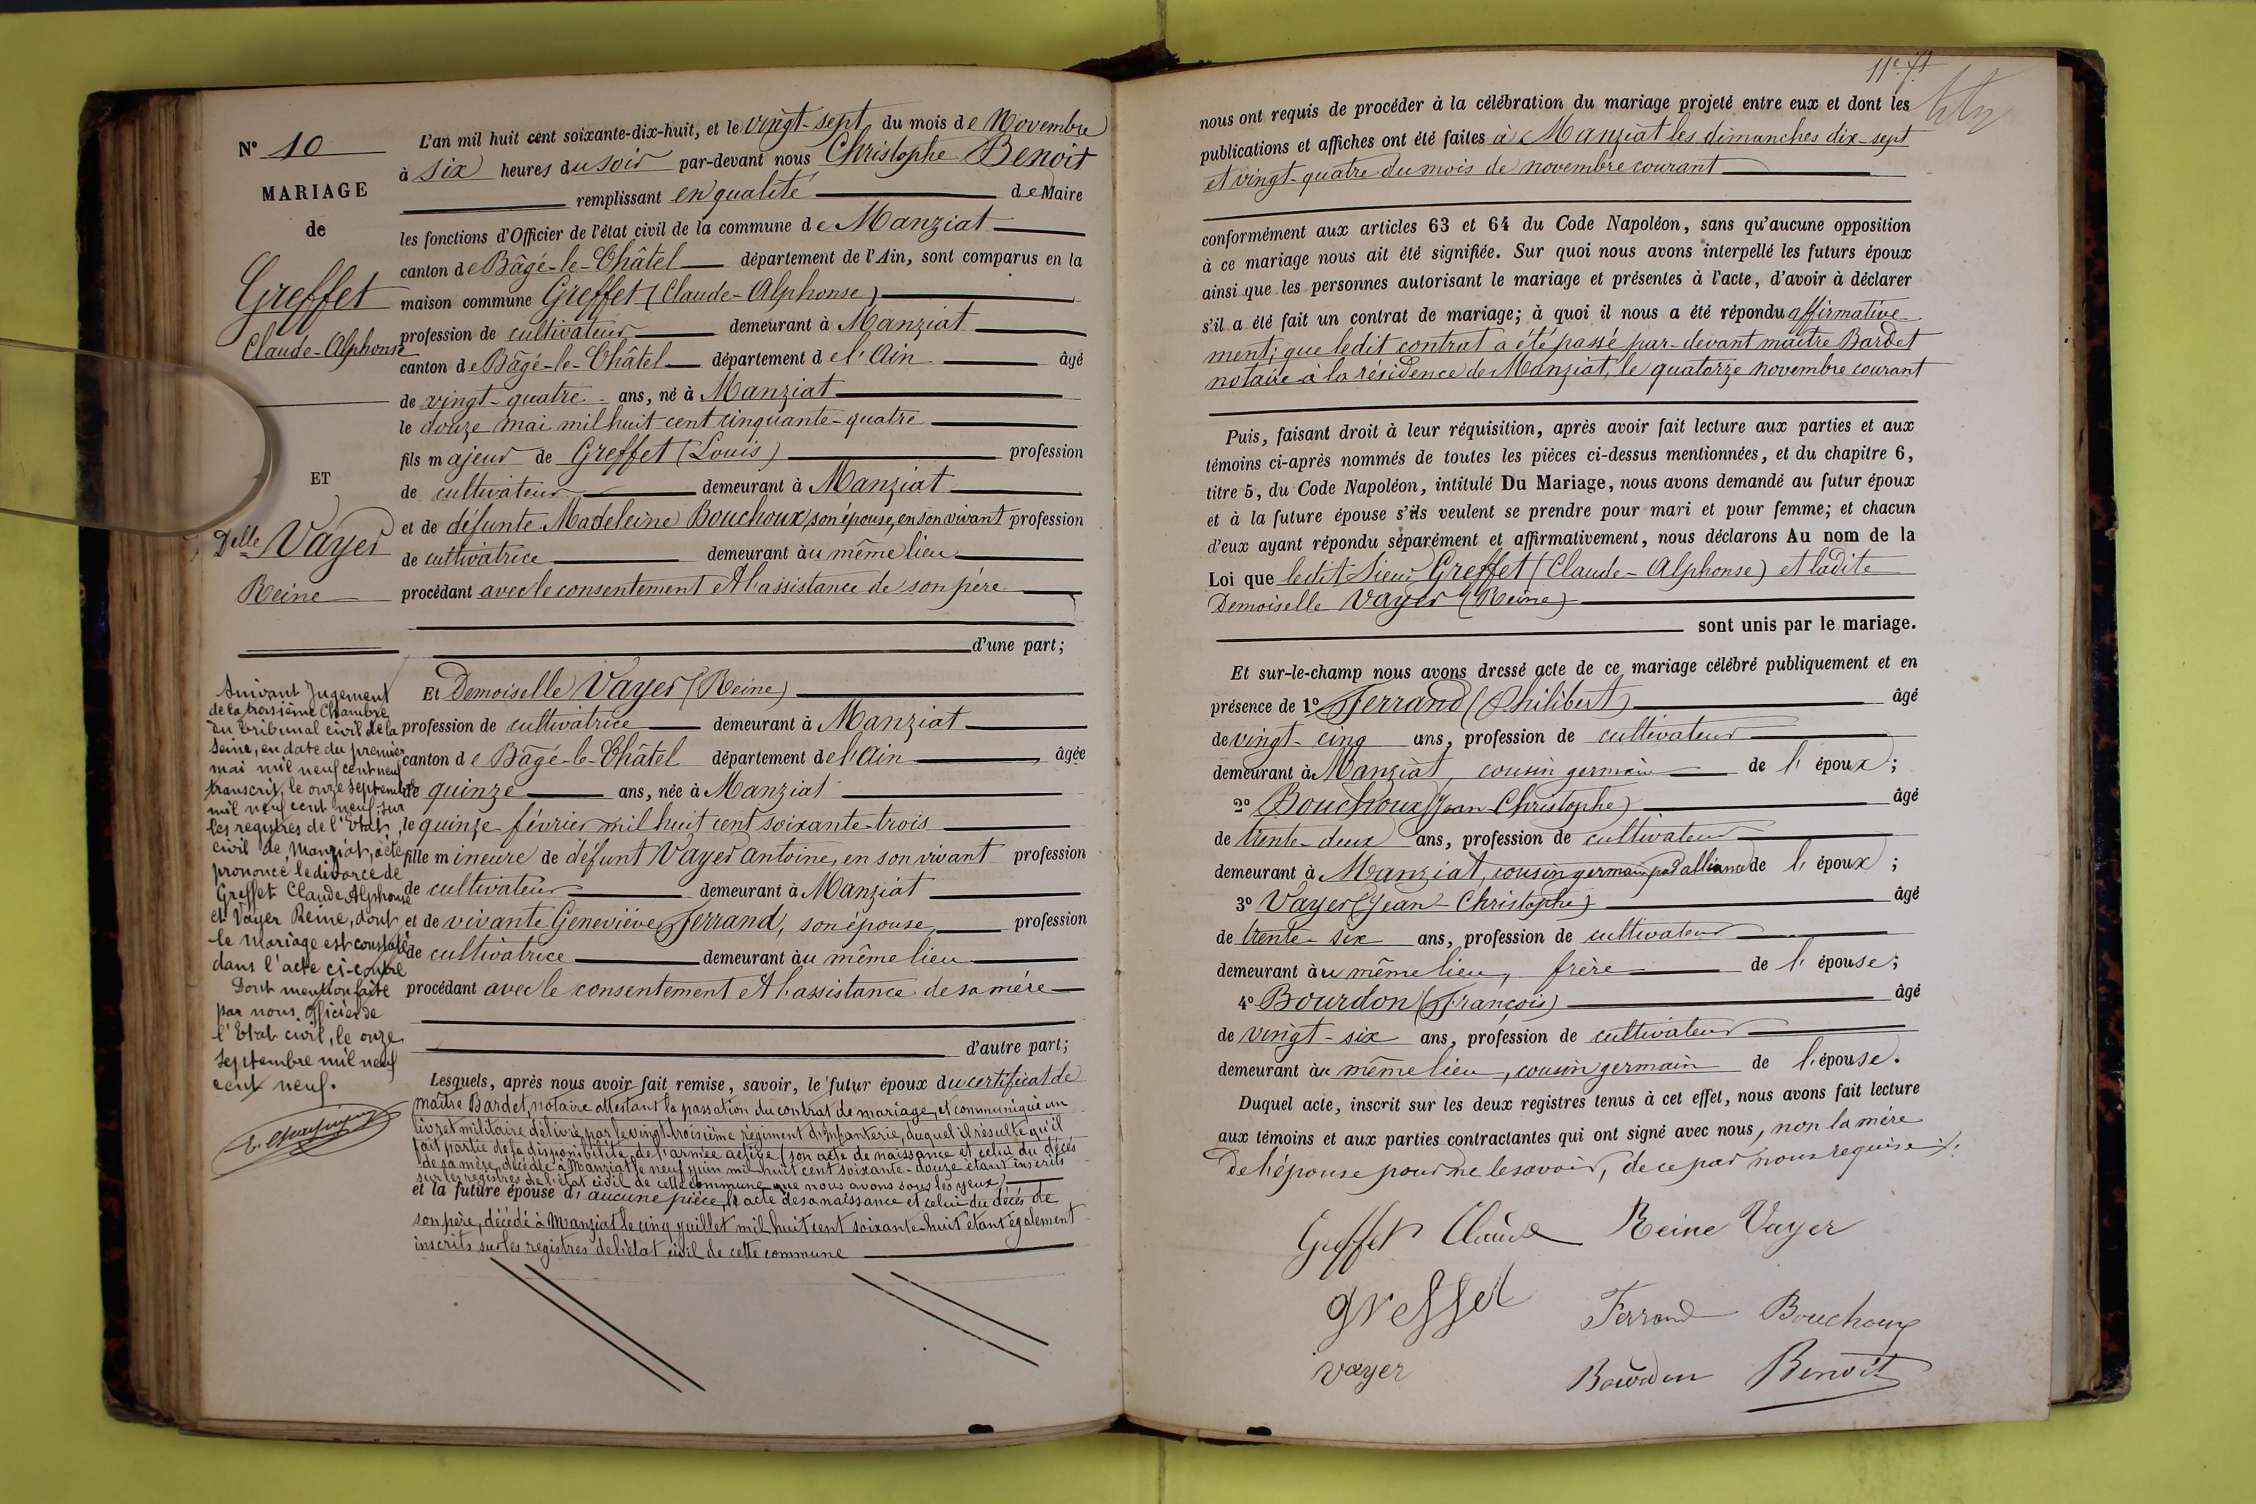 N° 10
MARIAGE
de
Greffet
Claude-Alphonse
ET
Delle Vayer
Reine
Suivant Jugement
de la troisième Chambre
du tribunal civil de la
Seine, en date du premier
mai mil neuf cent neuf
transcrit, le onze septembre
mil neuf cent neuf, sur
les registres de l'Etat
civil de Manziat, acte
prononcé le divorce de
Greffet Claude Alphonse
et Vayer Reine, dont
le mariage est constaté
dans l'acte ci-contre
Dont mention faite
par nous officier de
l'Etat civil, le onze
septembre mil neuf
cent neuf.
L'an mil huit cent soixante-dix-huit, et le vingt-sept du mois de Novembre
à six heures du soir par-devant nous Christophe Benoit
remplissant en qualité de Maire
les fonctions d'Officier de l'état civil de la commune de Manziat
canton de Bâgé-le-Châtel département de l'Ain, sont comparus en la
maison commune Greffet (Claude-Alphonse)
profession de cultivateur demeurant à Manziat
canton de Bâgé-le-Châtel département de l'Ain âgé
de vingt-quatre ans, né à Manziat
le douze mai mil huit cent cinquante-quatre
fils majeur de Greffet (Louis) profession
de cultivateur demeurant à Manziat
et de défunte Madeleine Bouchoux, son épouse, en son vivant profession
de cultivatrice demeurant au même lieu
procédant avec le consentement et l'assistance de son père
d'une part;
Et Demoiselle Vayer (Reine)
profession de cultivatrice demeurant à Manziat
canton de Bâgé-le-Châtel département de l'Ain âgée
de quinze ans, née à Manziat
le quinze février mil huit cent soixante-trois
fille mineure de défunt Vayer Antoine, en son vivant profession
de cultivateur demeurant à Manziat
et de vivante Geneviève Ferrand, son épouse, profession
de cultivatrice demeurant au même lieu
procédant avec le consentement et l'assistance de sa mère
d'autre part;
Lesquels, après nous avoir fait remise, savoir, le futur époux du certificat de
maître Bardet, notaire attestant la passation du contrat de mariage, et communiqué un
livret militaire délivré par le vingt-troisième régiment d'Infanterie, duquel il résulte qu'il
fait partie de la disponibilité de l'armée active (son acte de naissance et celui du décès
de sa mère, décédée à Manziat le neuf juin mil huit cent soixante-douze étant inscrits
sur les registres de l'état civil de cette commune que nous avons sous les yeux)
et la future épouse d'aucune pièce, l'acte de sa naissance et celui du décès de
son père, décédé à Manziat le cinq juillet mil huit cent soixante-huit étant également
inscrits sur les registres de l'état civil de cette commune
11e ft
nous ont requis de procéder à la célébration du mariage projeté entre eux et dont les
publications et affiches ont été faites à Manziat les dimanches dix-sept
et vingt-quatre du mois de novembre courant
conformément aux articles 63 et 64 du Code Napoléon, sans qu'aucune opposition
à ce mariage nous ait été signifiée. Sur quoi nous avons interpellé les futurs époux
ainsi que les personnes autorisant le mariage et présentes à l'acte, d'avoir à déclarer
s'il a été fait un contrat de mariage; à quoi il nous a été répondu affirmative-
ment; que ledit contrat a été passé par-devant maître Bardet
notaire à la résidence de Manziat, le quatorze novembre courant
Puis, faisant droit à leur réquisition, après avoir fait lecture aux parties et aux
témoins ci-après nommés de toutes les pièces ci-dessus mentionnées, et du chapitre 6,
titre 5, du Code Napoléon, intitulé Du Mariage, nous avons demandé au futur époux
et à la future épouse s'ils veulent se prendre pour mari et pour femme; et chacun
d'eux ayant répondu séparément et affirmativement, nous déclarons Au nom de la
Loi que ledit sieur Greffet (Claude-Alphonse) et ladite
Demoiselle Vayer (Reine)
sont unis par le mariage.
Et sur-le-champ nous avons dressé acte de ce mariage célébré publiquement et en
présence de 1° Ferrand (Philibert) âgé
de vingt-cinq ans, profession de cultivateur
demeurant à Manziat, cousin germain de l'époux;
2° Bouchoux (Jean Christophe) âgé
de trente-deux ans, profession de cultivateur
demeurant à Manziat, cousin germain par alliance de l'époux;
3° Vayer (Jean-Christophe) âgé
de trente-six ans, profession de cultivateur
demeurant au même lieu, frère de l'épouse;
4° Bourdon (François) âgé
de vingt-six ans, profession de cultivateur
demeurant au même lieu, cousin germain de l'épouse.
Duquel acte, inscrit sur les deux registres tenus à cet effet, nous avons fait lecture
aux témoins et aux parties contractantes qui ont signé avec nous, non la mère
de l'épouse pour ne le savoir, de ce par nous requise.
Greffet Claude Reine Vayer
greffet
Ferrand Bouchoux
vayer
Bourdon Benoit